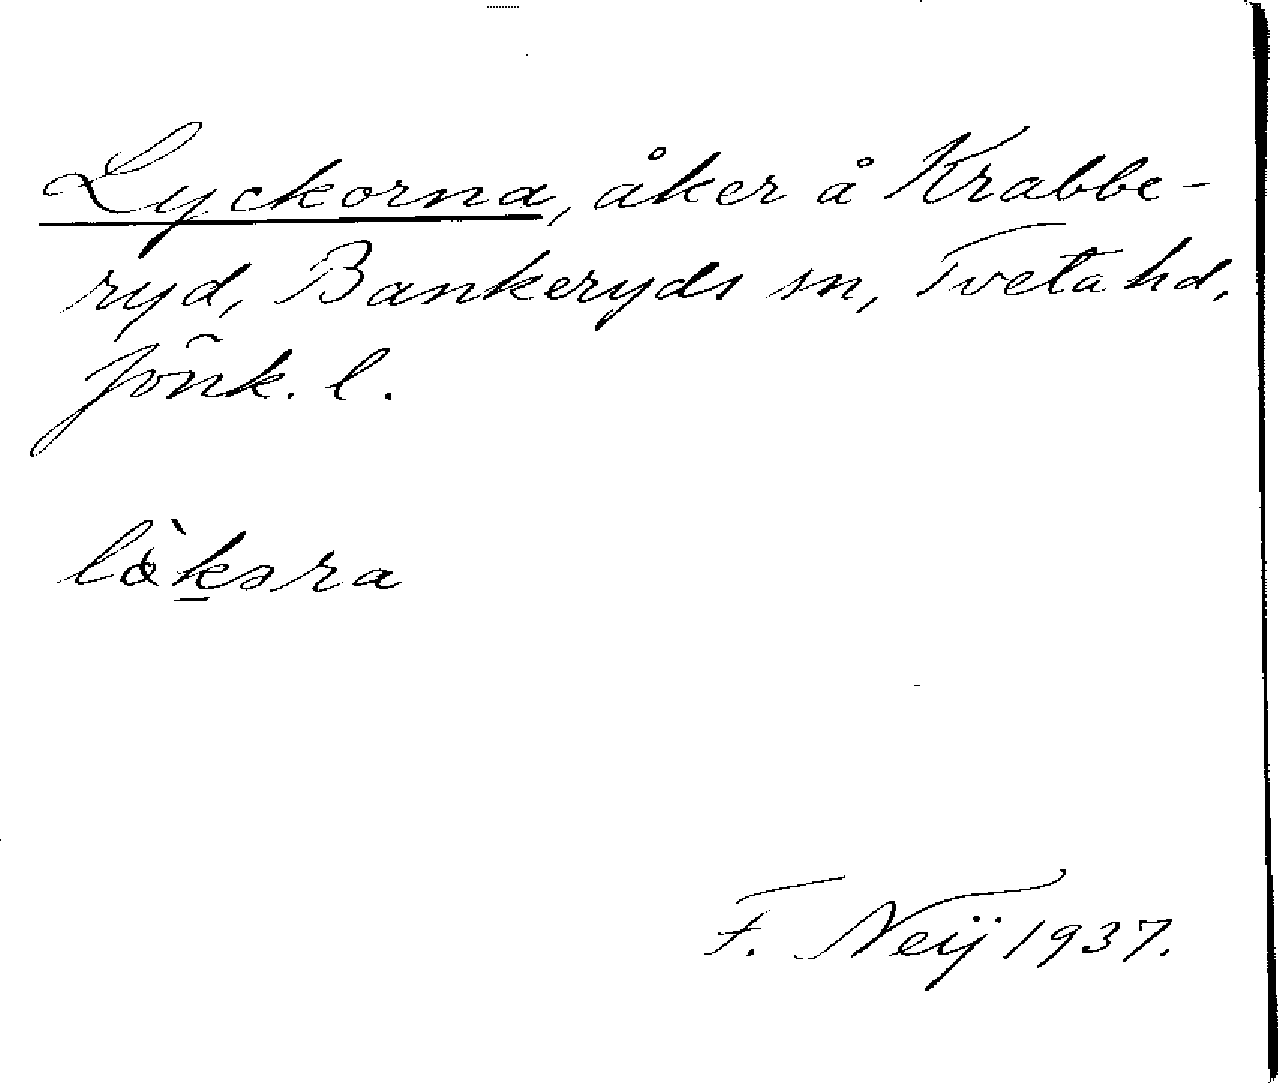 Lyckorna, åker å Krabbe-
ryd, Bankeryds sn, Tveta hd,
Jönk. l.
F. Neij 1937.